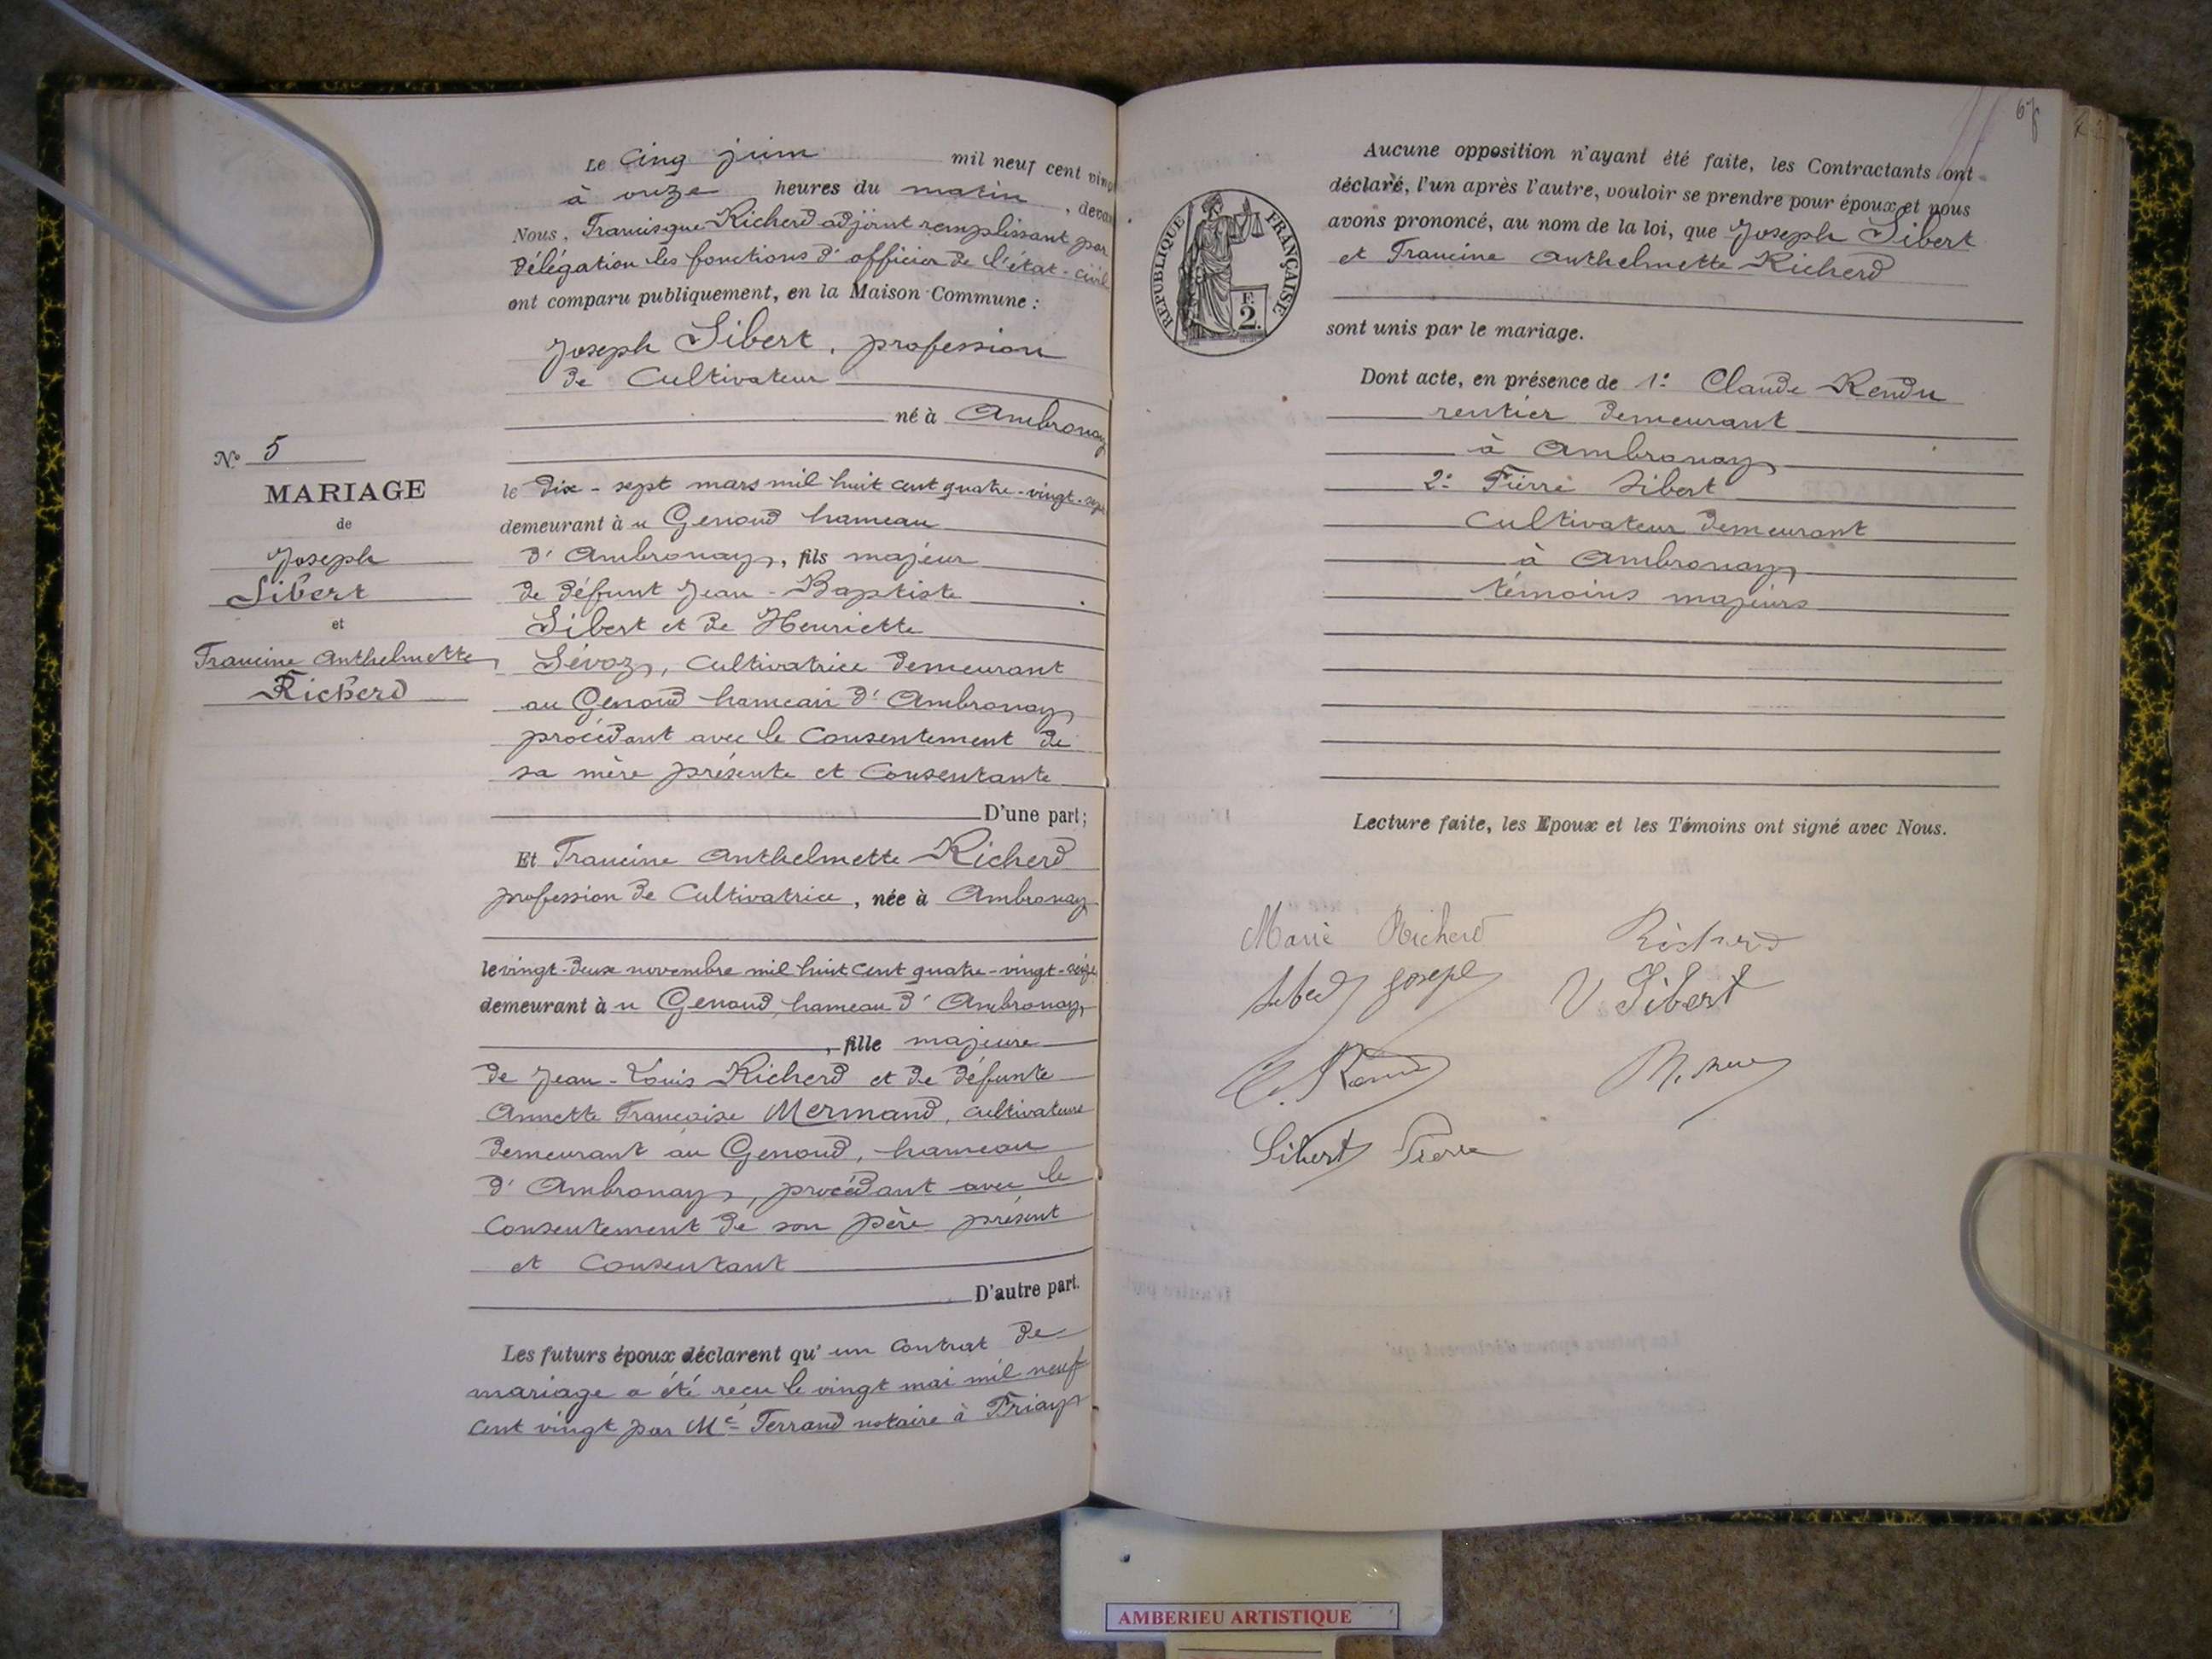 Le Cinq juin mil neuf cent vin
à onze heures du matin, deva
Nous, Francisque Richerd adjoint remplissant par
Délégation les fonctions d'officier de l'état-civil
ont comparu publiquement, en la Maison Commune :
Joseph Sibert, profession
de Cultivateur
né à Ambronay
N° 5
MARIAGE
de
Joseph
Sibert
et
Francine Anthelmette
Richerd
le dix-sept mars mil huit cent quatre-vingt-sept
demeurant à u Genoud hameau
d'Ambronay, fils majeur
de défunt Jean-Baptiste
Sibert et de Henriette
Sévoz, Cultivatrice demeurant
au Genoud hameau d'Ambronay
procédant avec le Consentement de
sa mère présente et Consentante
D'une part;
Et Francine Anthelmette Richerd
profession de Cultivatrice, née à Ambronay
le vingt-deux novembre mil huit cent quatre-vingt-seize
demeurant à u Genoud, hameau d'Ambronay,
, fille majeure
de Jean-Louis Richerd et de défunte
Annette Françoise Mermand, cultivateur
demeurant au Genoud, hameau
d'Ambronay, procédant avec le
Consentement de son père présent
et Consentant
D'autre part.
Les futurs époux déclarent qu'un Contrat de
mariage a été reçu le vingt mai mil neuf
cent vingt par Me Ferrand notaire à Priay
67
RÉPUBLIQUE FRANÇAISE
F.
2.
Aucune opposition n'ayant été faite, les Contractants ont
déclaré, l'un après l'autre, vouloir se prendre pour époux et nous
avons prononcé, au nom de la loi, que Joseph Sibert
et Francine Anthelmette Richerd
sont unis par le mariage.
Dont acte, en présence de 1° Claude Rendu
rentier demeurant
à Ambronay
2° Pierre Sibert
Cultivateur demeurant
à Ambronay
témoins majeurs
Lecture faite, les Epoux et les Témoins ont signé avec Nous.
Marie Richerd Richerd
Sibert Joseph V Sibert
C. Rendu
Sibert Pierre
AMBERIEU ARTISTIQUE